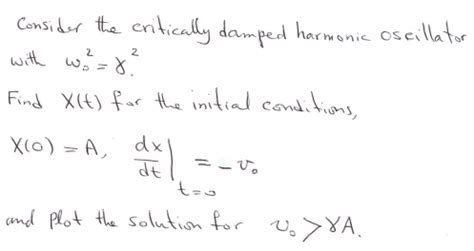 Consider the critically damped harmonic oscillator
with ω₀² = γ².
Find X(t) for the initial conditions,
X(0) = A, dx/dt|ₜ₌₀ = -v₀
and plot the solution for v₀ > γA.